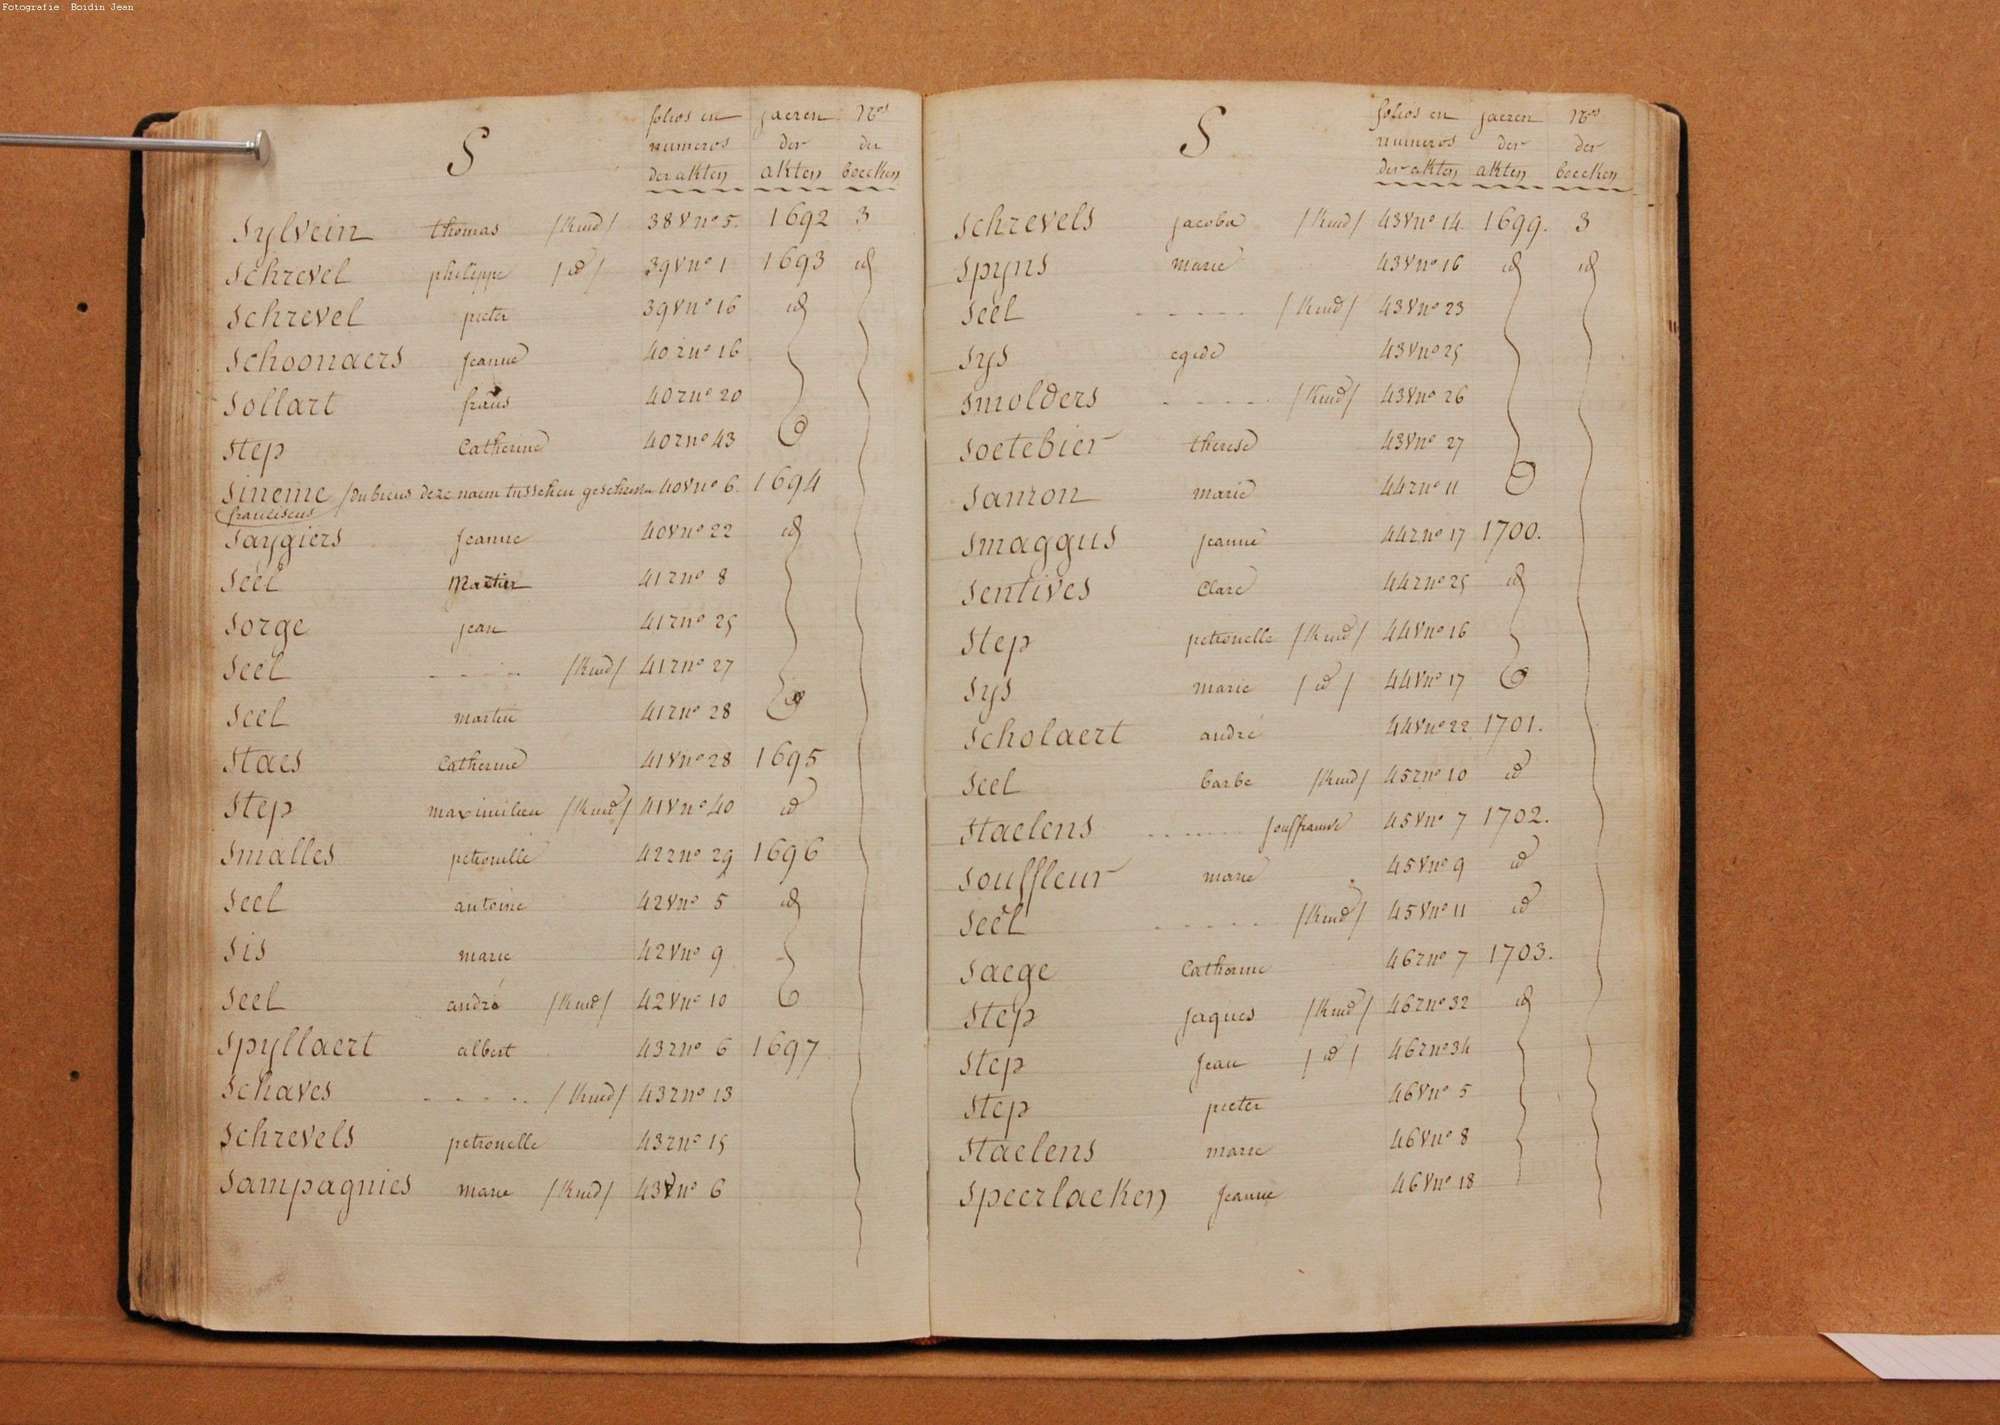 Fotografie Boidin Jean
S folios en jaeren Nos
numeros der der
der akten akten boecken
Sylvein thomas /kind/ 38 v no 5. 1692 3
Schrevel philippe /id/ 39 v no 1 1693 id
Schrevel pieter 39 v no 16 id
Schoonaers jeanne 40 r no 16
Sollart frans 40 r no 20
Step Catherine 40 r no 43
Sineme /dubieus deze naem tusschen geschreven 40 v no 6. 1694
franciscus
Saygiers jeanne 40 v no 22 id
Seel Martin 41 r no 8
Sorge jean 41 r no 25
Seel ..... /kind/ 41 r no 27
Seel martin 41 r no 28
Staes Catherine 41 v no 28 1695
Step maximilien /kind/ 41 v no 40 id
Smalles petronille 42 r no 29 1696
Seel antoine 42 v no 5 id
Sis marie 42 v no 9
Seel andré /kind/ 42 v no 10
Spyllaert albert 43 r no 6 1697
Schaves ..... /kind/ 43 r no 13
Schrevels petronelle 43 r no 15
Sampagnies marie /kind/ 43 v no 6
S folios en jaeren Nos
numeros der der
der akten akten boecken
Schrevels jacoba /kind/ 43 v no 14. 1699. 3
Spyns marie 43 v no 16 id id
Seel ..... /kind/ 43 v no 23
Sys egide 43 v no 25
Smolders ..... /kind/ 43 v no 26
Soetebier therese 43 v no 27
Samron marie 44 r no 11
Smaggus jeanne 44 r no 17 1700.
Sentives Clare 44 r no 25 id
Step petronelle /kind/ 44 v no 16
Sys marie /id/ 44 v no 17
Scholaert andré 44 v no 22 1701.
Seel barbe /kind/ 45 r no 10 id
Staelens ...... jouffrauw 45 v no 7 1702.
Souffleur marie 45 v no 9 id
Seel ..... /kind/ 45 v no 11 id
Saege Catherine 46 r no 7 1703.
Step jaques /kind/ 46 r no 32 id
Step jean /id/ 46 r no 34
Step pieter 46 v no 5
Staelens marie 46 v no 8
Speerlaeken jeanne 46 v no 18